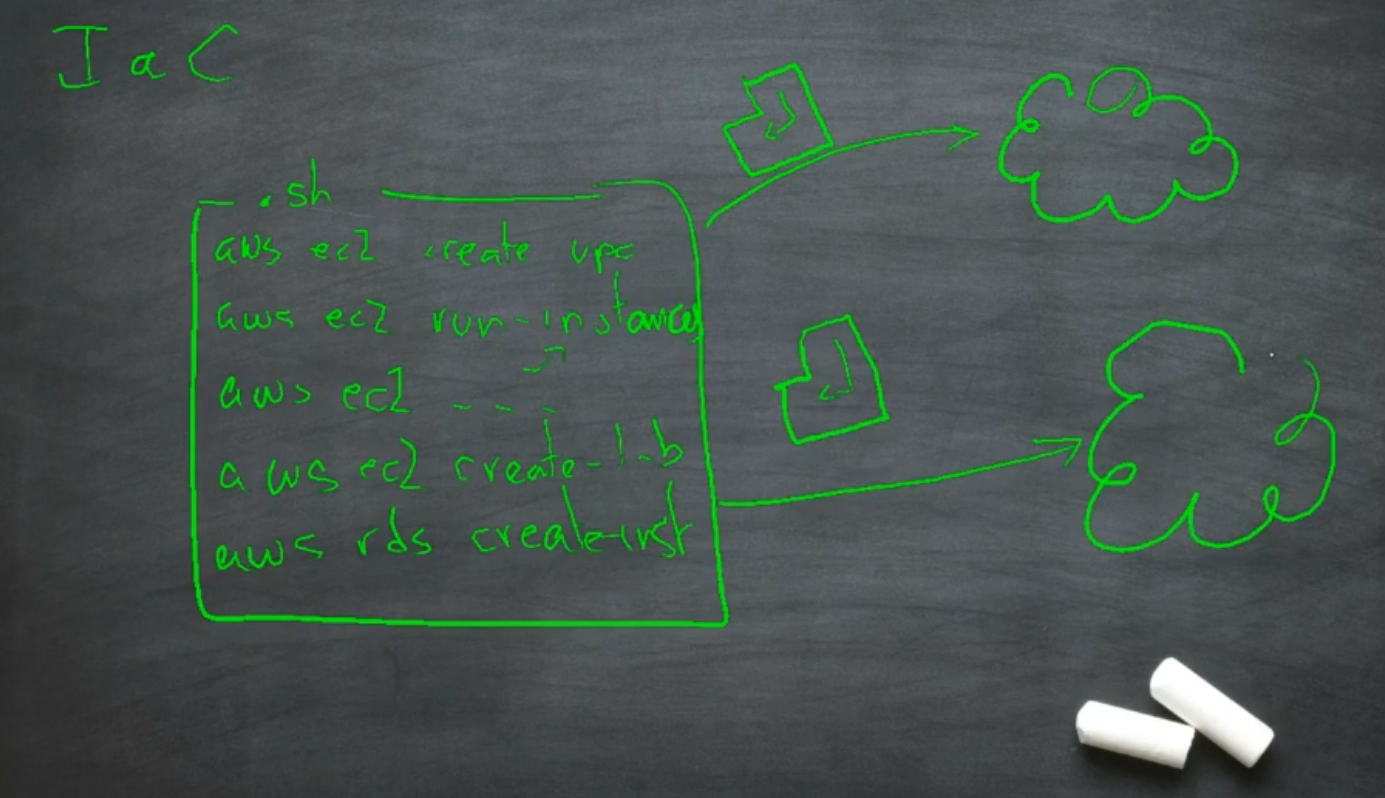 IaC
.sh
aws ec2 create vpc
aws ec2 run-instances
aws ec2 ----
aws ec2 create-l-b
aws rds create-inst